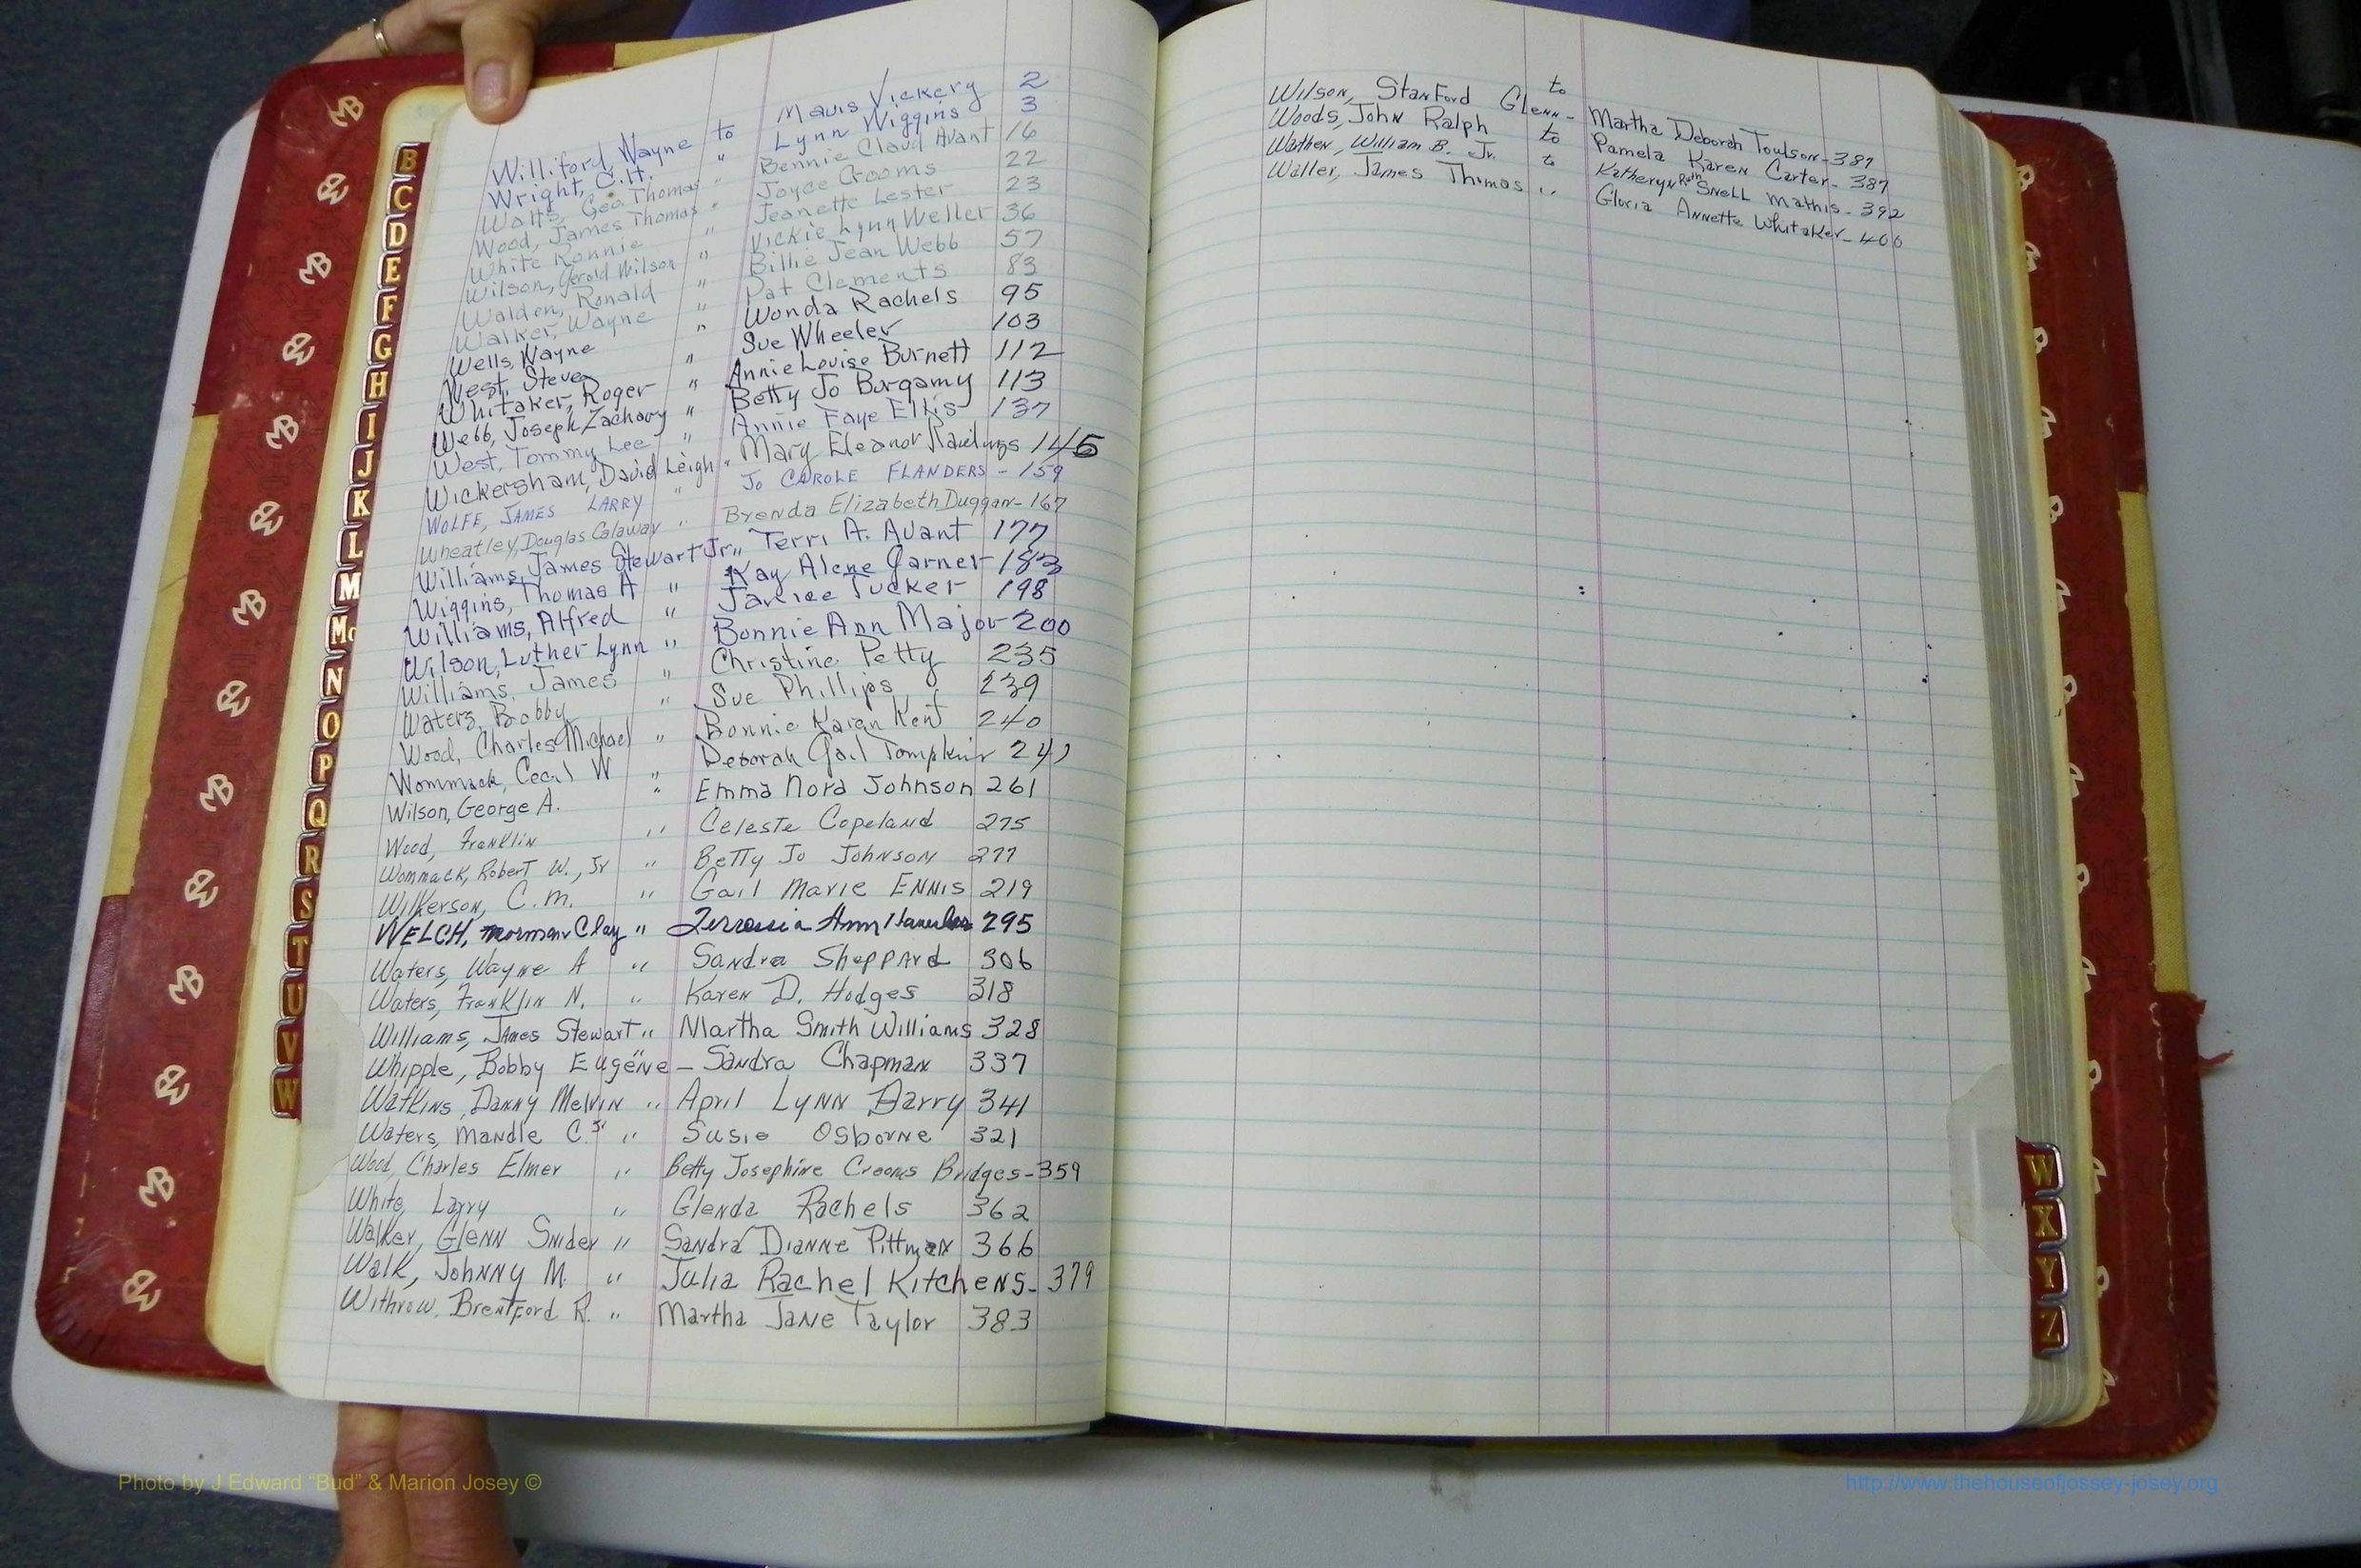 Williford, Wayne to Mavis Vickery 2
Wright, C.H. " Lynn Wiggins 3
Watts, Geo. Thomas " Bennie Claud Avant 16
Wood, James Thomas " Joyce Crooms 22
White Ronnie " Jeanette Lester 23
Wilson, Gerold Wilson " Vickie Lynn Weller 36
Walden, Ronald " Billie Jean Webb 57
Walker, Wayne " Pat Clements 83
Wells, Wayne " Wonda Rachels 95
West, Steve " Sue Wheeler 103
Whitaker, Roger " Annie Louise Burnett 112
Webb, Joseph Zachary " Betty Jo Burgamy 113
West, Tommy Lee " Annie Faye Ellis 137
Wickersham, David Leigh " Mary Eleanor Rawlings 145
WOLFE, JAMES LARRY " JO CAROLE FLANDERS - 159
Wheatley, Douglas Calaway " Brenda Elizabeth Duggan - 167
Williams, James Stewart Jr. " Terri A. Avant 177
Wiggins, Thomas A " Kay Alene Garner - 183
Williams, Alfred " Janice Tucker 198
Wilson, Luther Lynn " Bonnie Ann Major - 200
Williams, James " Christine Petty 235
Waters, Bobby " Sue Phillips 239
Wood, Charles Michael " Bonnie Karen Kent 240
Wommack, Cecil W " Deborah Gail Tompkins
Wilson, George A. " Emma Nora Johnson 261
Wood, Franklin " Celeste Copeland 275
Wommack, Robert W., Jr " Betty Jo Johnson 277
Wilkerson, C. M. " Gail Marie Ennis 219
WELCH, Norman Clay " Ann 295
Waters, Wayne A " Sandra Sheppard 306
Waters, Franklin N. " Karen D. Hodges 318
Williams, James Stewart " Martha Smith Williams 328
Whipple, Bobby Eugene " - Sandra Chapman 337
Watkins, Danny Melvin " April Lynn Barry 341
Waters, Mandle C. Sr " Susie Osborne 321
Wood, Charles Elmer " Betty Josephine Crooms Bridges - 359
White, Larry " Glenda Rachels 362
Walker, Glenn Snider " Sandra Dianne Pittman 366
Walk, Johnny M. " Julia Rachel Kitchens - 379
Withrow, Brentford R. " Martha Jane Taylor 383
Wilson, Stanford Glenn - to Martha Deborah Toulson - 387
Woods, John Ralph to Pamela Karen Carter - 387
Warthen, William B. Jr. to Katheryn Ruth Snell Mathis - 392
Waller, James Thomas " Gloria Annette Whitaker - 400
B
C
D
E
F
G
H
I
J
K
L
M
Mc
N
O
P
Q
R
S
T
U
V
W
W
X
Y
Z
Photo by J Edward “Bud” & Marion Josey ©
http://www.thehouseofjossey-josey.org